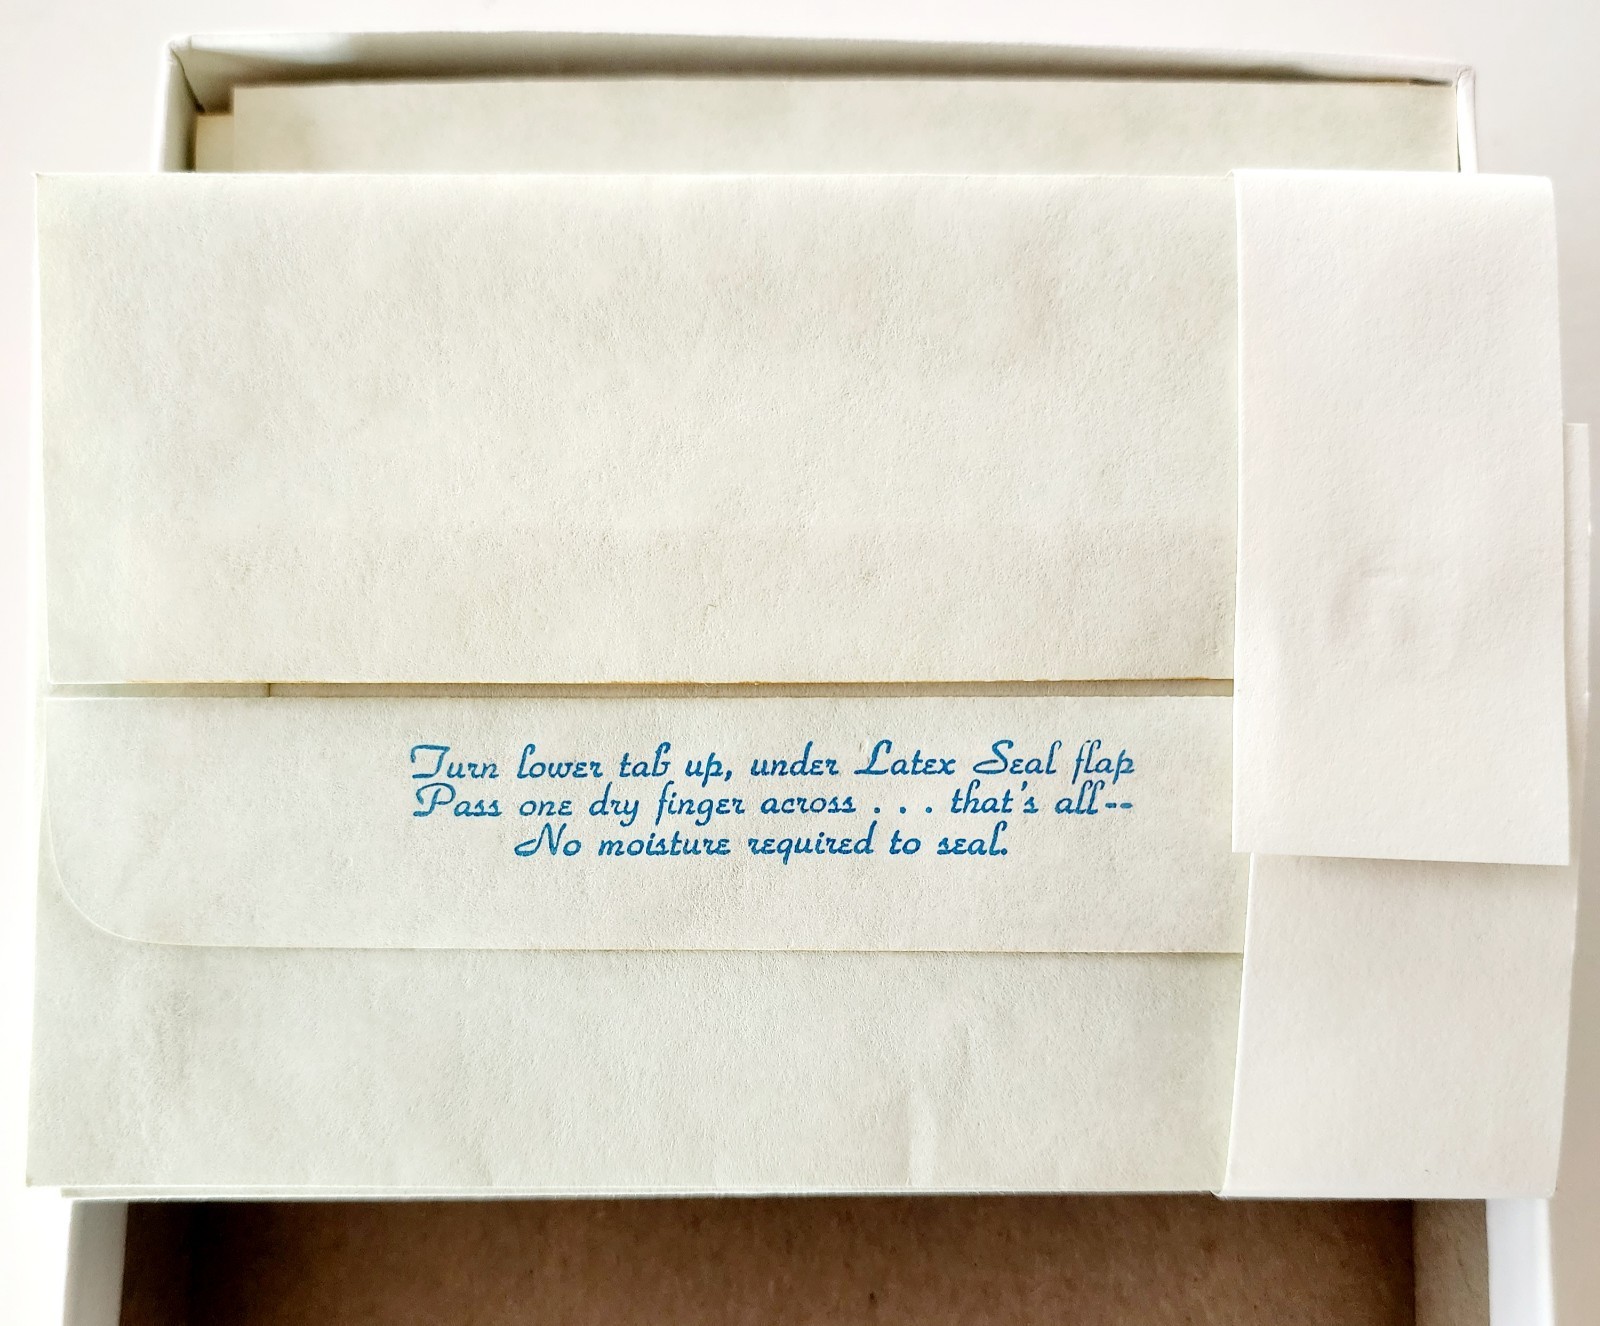 Turn lower tab up, under Latex Seal flap
Pass one dry finger across . . . that's all--
No moisture required to seal.